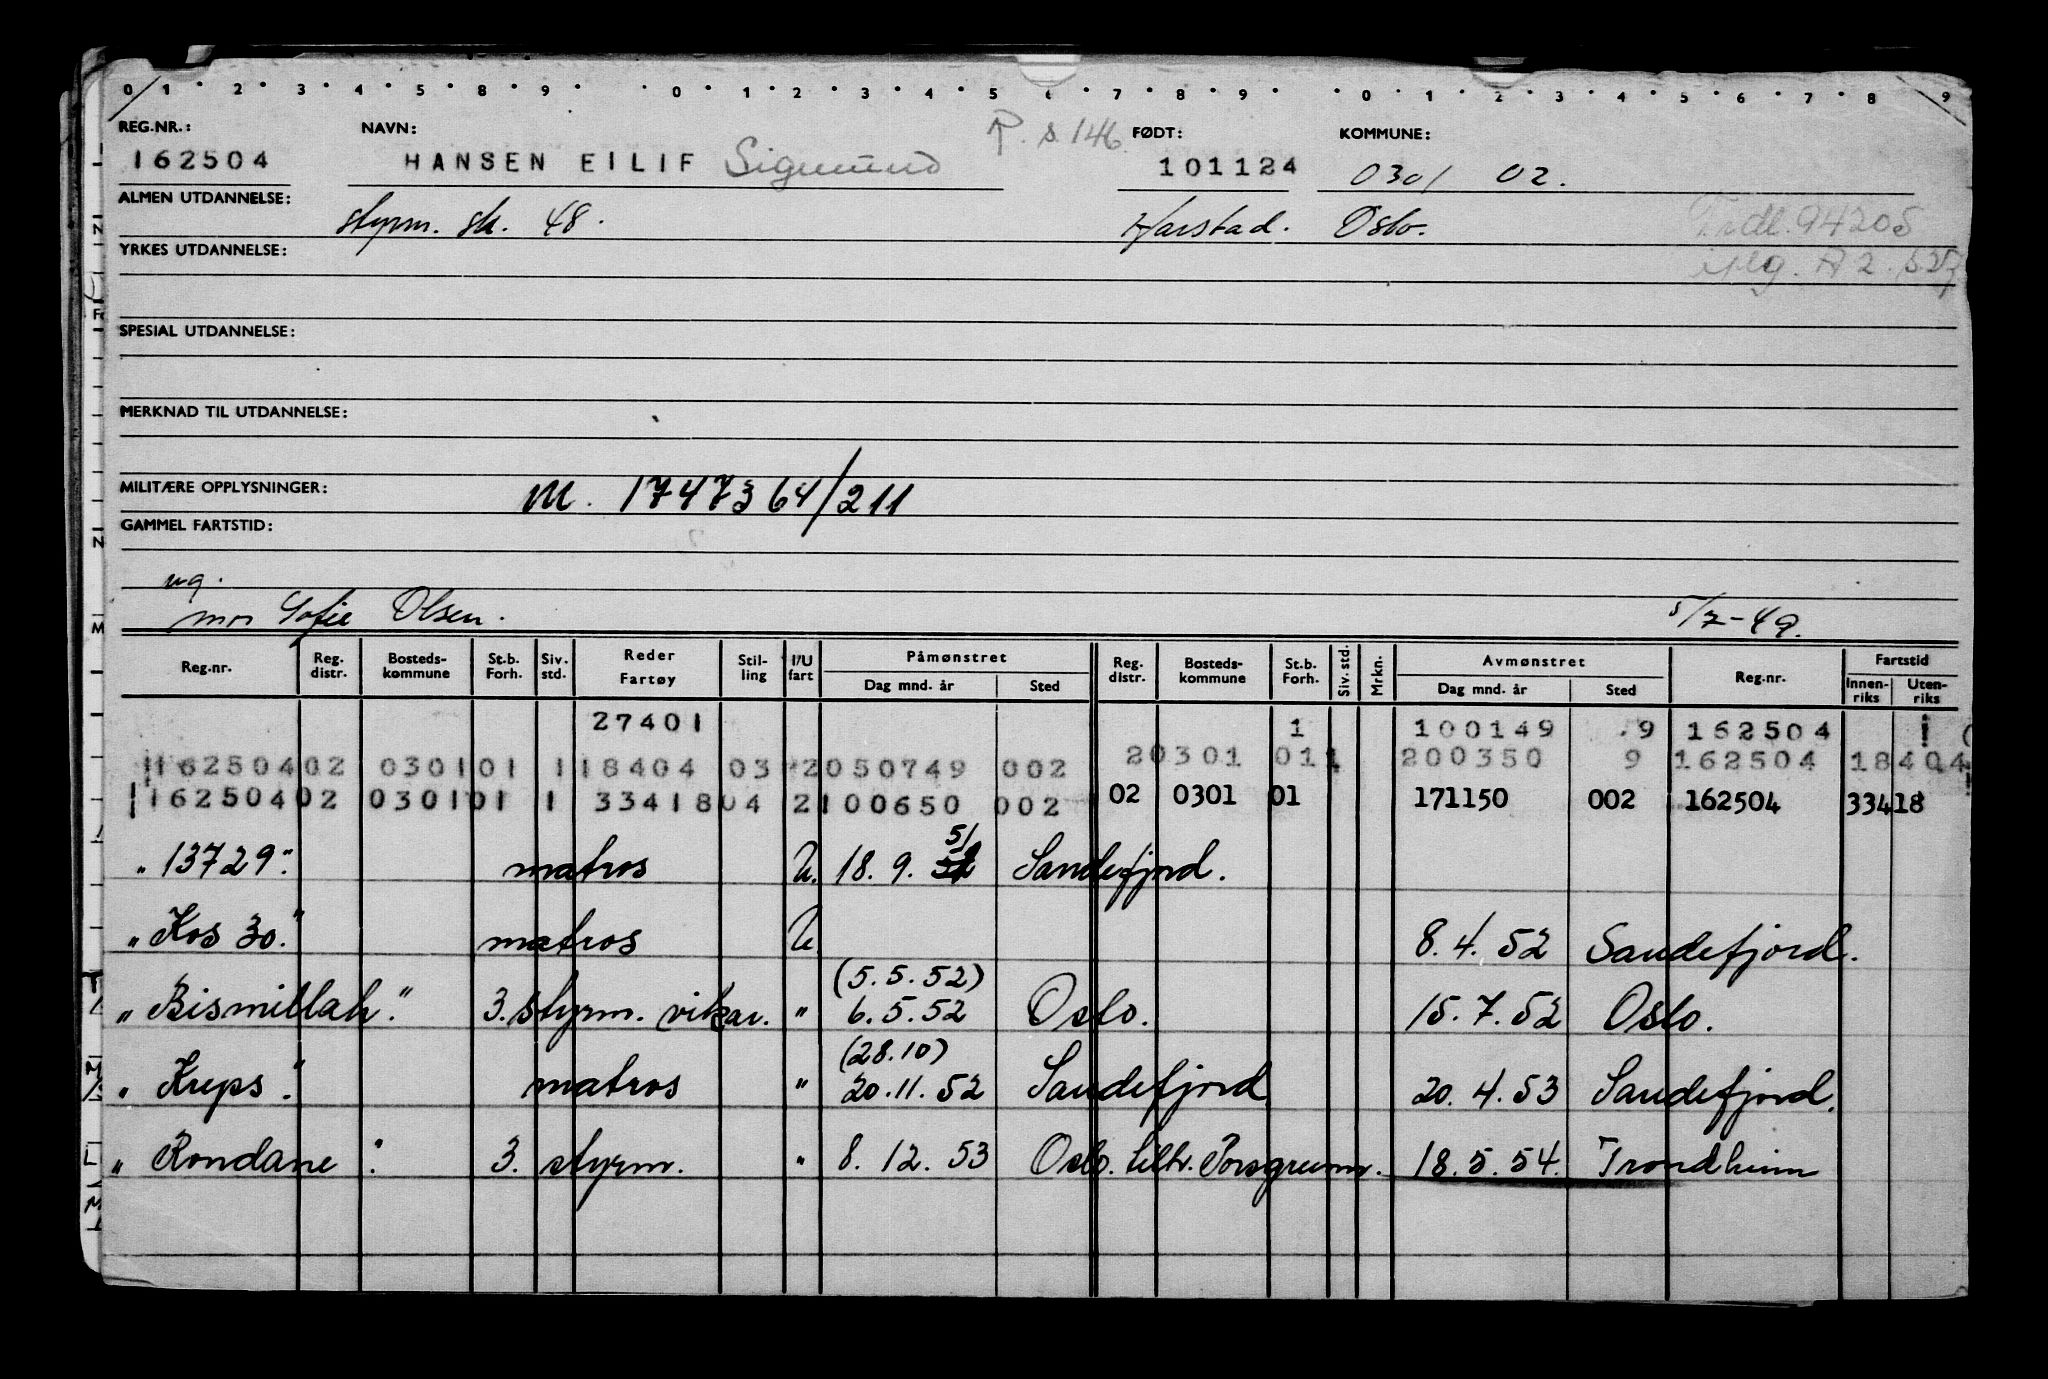 0 1 2 3 4 5 8 9 0 1 2 3 4 5 6 7 8 9 0 1 2 3 4 5 6 7 8 9
REG.NR.: NAVN: P. s. 146 FØDT: KOMMUNE:
162504 HANSEN EILIF Sigmund 101124 0301 02.
ALMEN UTDANNELSE: styrm. sk. 48. Harstad. Oslo. 94205
YRKES UTDANNELSE:
SPESIAL UTDANNELSE:
MERKNAD TIL UTDANNELSE:
MILITÆRE OPPLYSNINGER: M. 1747364/211
GAMMEL FARTSTID:
ug.
mor Sofie Olsen. 5/7-49.
Reg.nr. Reg. distr. Bosteds-kommune St.b. Forh. Siv. std. Reder Fartøy Stil-ling I/U fart Påmønstret Dag mnd. år Sted Reg. distr. Bosteds-kommune St.b. Forh. Siv. std. Mrkn. Avmønstret Dag mnd. år Sted Reg.nr. Fartstid Innen-riks Uten-riks
27401 1 100149 9 162504
162504 02 0301 01 1 18404 03 2 050749 002 20301 011 200350 9 162504 18404
162504 02 0301 01 1 33418 04 2 100650 002 02 0301 01 171150 002 162504 33418
"13729" matros U. 18. 9. 51 Sandefjord.
"Kos 30." matros U. 8. 4. 52 Sandefjord.
(5.5.52)
"Bismillah." 3. styrm. vikar. " 6.5.52 Oslo. 15.7.52 Oslo.
(28.10)
"Kreps". matros " 20.11.52 Sandefjord 20.4.53 Sandefjord.
"Rondane". 3. styrm. " 8.12.53 Oslo. tiltr. Porsgrunn. 18.5.54. Trondheim